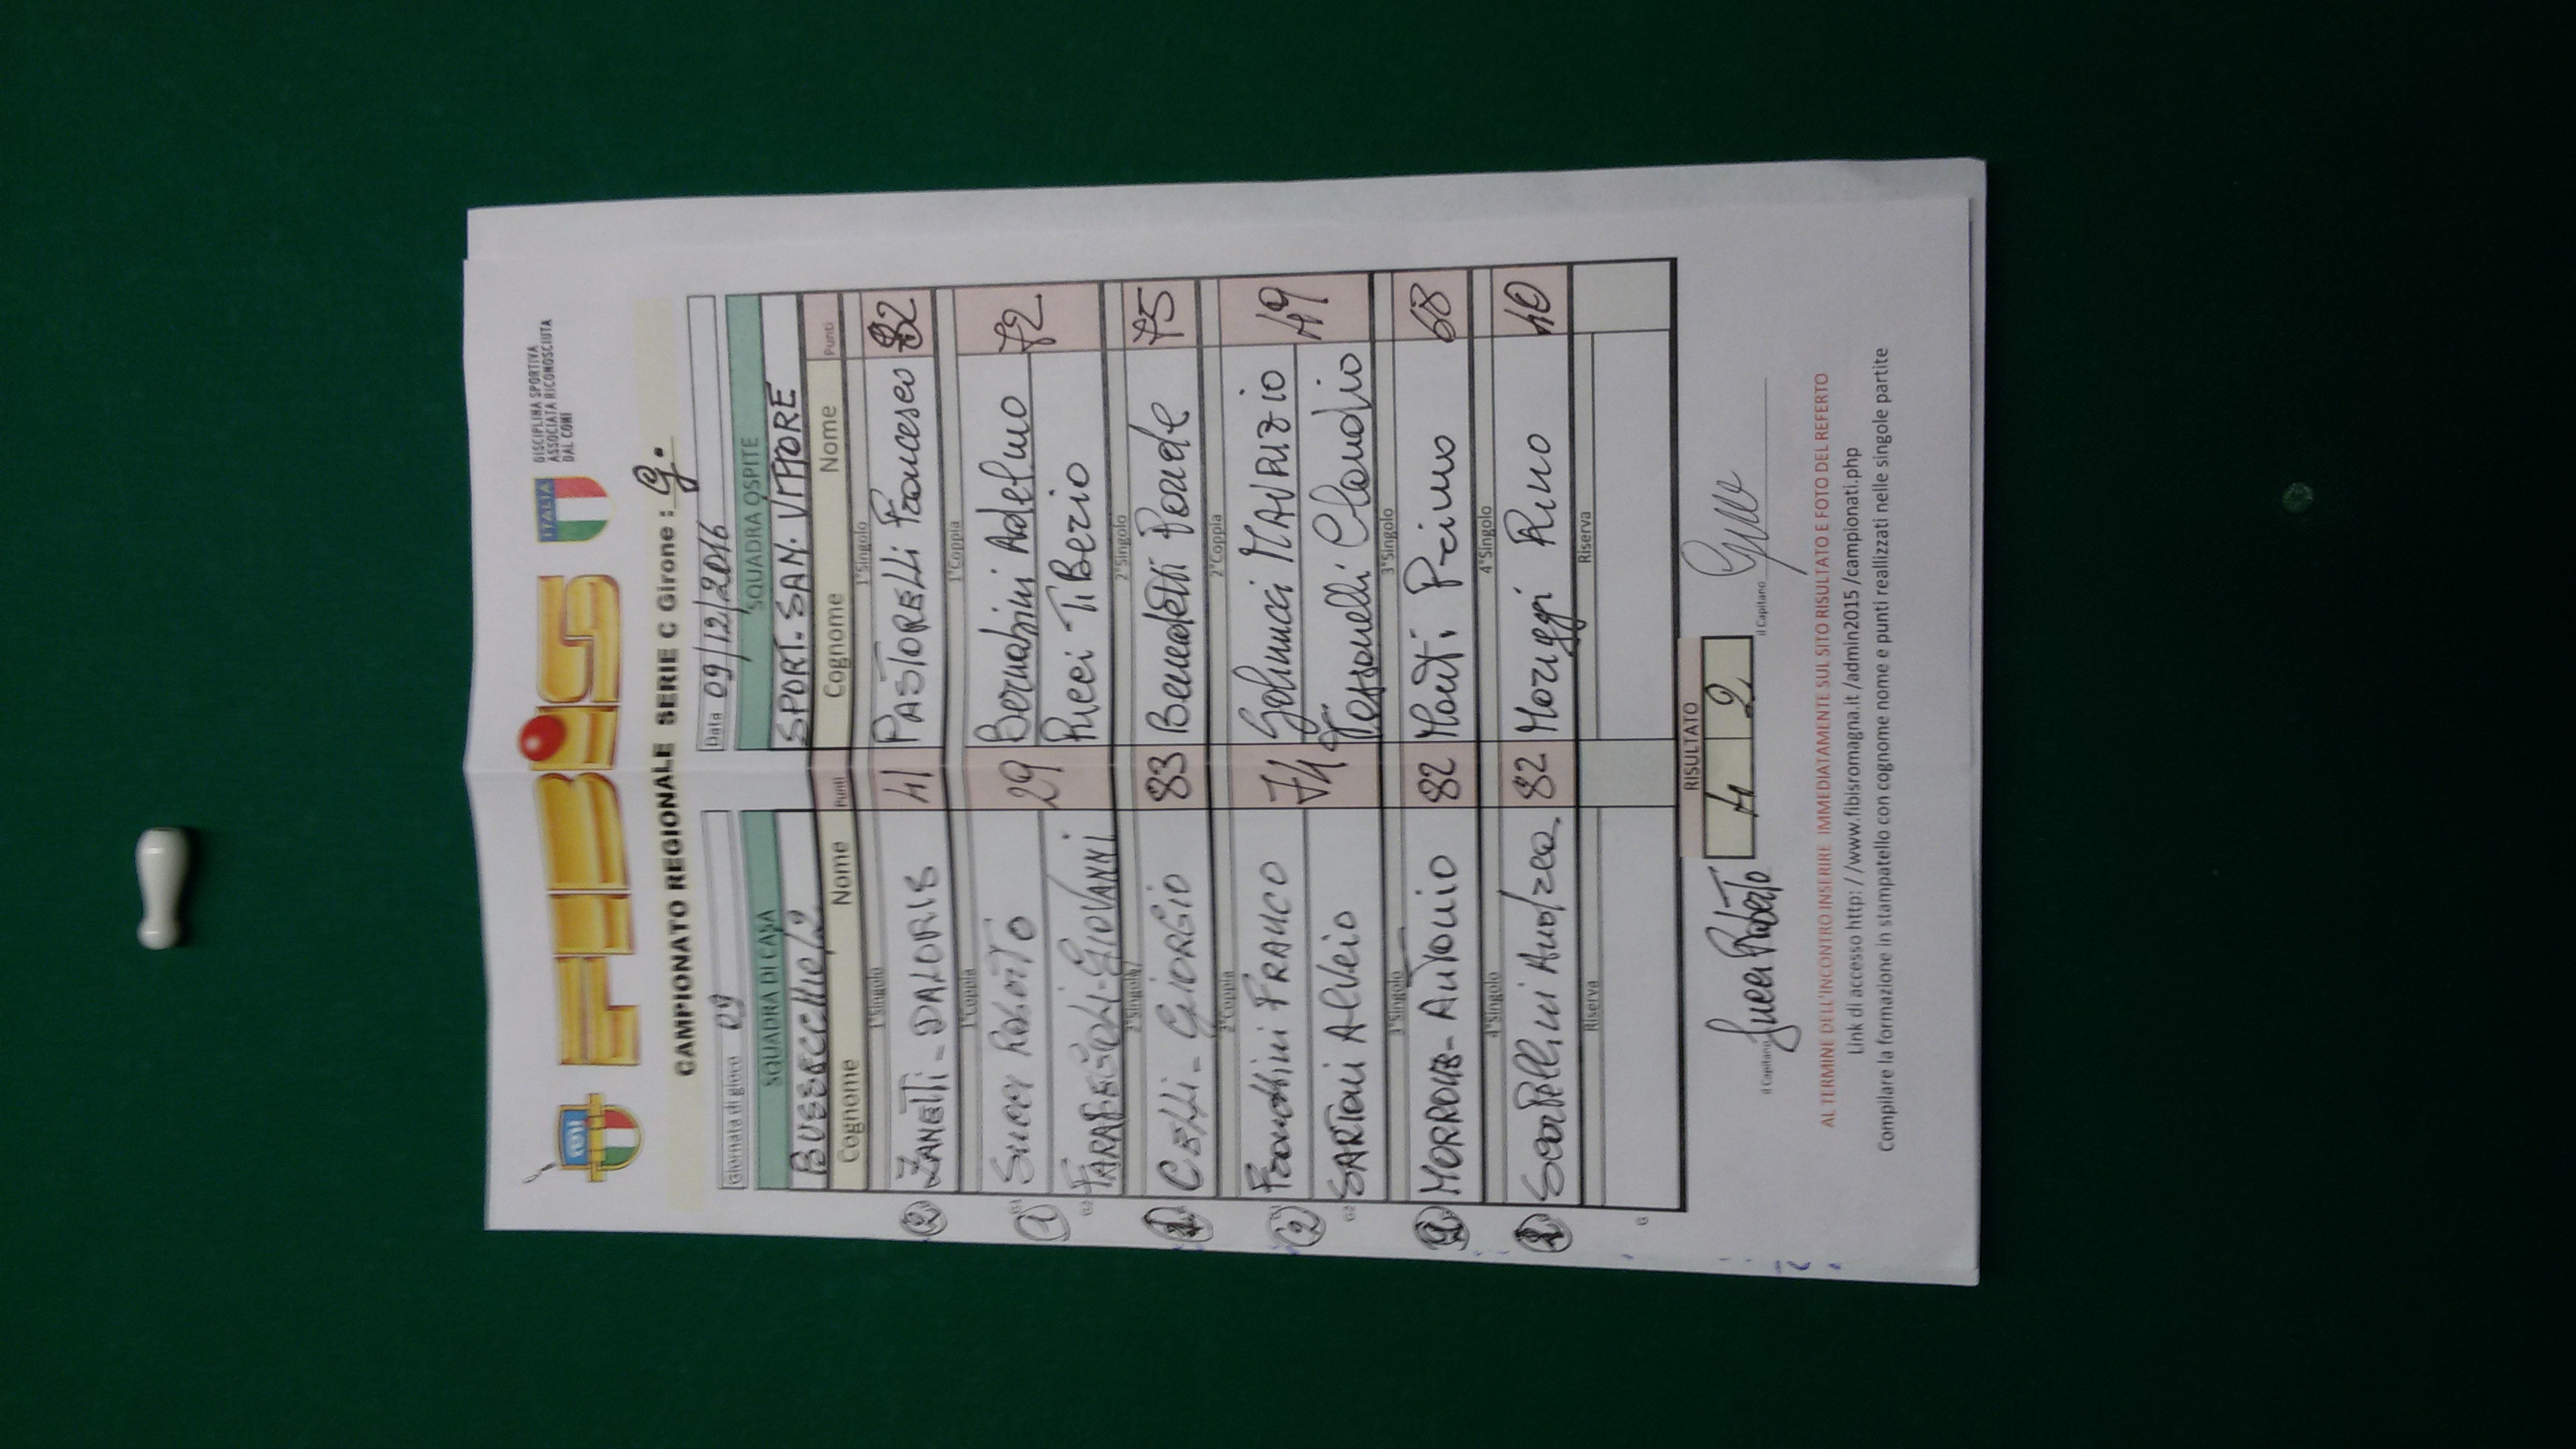 FIBIS
ITALIA
DISCIPLINA SPORTIVA
ASSOCIATA RICONOSCIUTA
DAL CONI
CAMPIONATO REGIONALE SERIE C Girone : G.
Giornata di gioco 09 Data 09/12/2016
SQUADRA DI CASA SQUADRA OSPITE
BUSSECCHIO/2 SPORT. SAN. VITTORE
Cognome Nome Punti Cognome Nome Punti
1°Singolo 1°Singolo
2 ZANETTI - DALORIS 41 PASTORELLI Francesco 82
1°Coppia 1°Coppia
1 Succi Roberto 29 Bernabini Adelmo 72
FARABEGOLI - GIOVANNI Ricci Tiberio
2°Singolo 2°Singolo
CELLI - GIORGIO 83 Benedetti Paride 75
2°Coppia 2°Coppia
2 Franchini FRANCO 74 Golinucci MAURIZIO 49
G2 SARTONI ALVEIO Tessarelli Claudio
3°Singolo 3°Singolo
MORRONE - ANTONIO 82 Monti Primo 68
4°Singolo 4°Singolo
Scarpellini Andrea 82 Moriggi Rino 40
Riserva Riserva
RISULTATO
il Capitano Succi Roberto 4 2 il Capitano
AL TERMINE DELL'INCONTRO INSERIRE IMMEDIATAMENTE SUL SITO RISULTATO E FOTO DEL REFERTO
Link di accesso http: / /www.fibisromagna.it /admin2015 /campionati.php
Compilare la formazione in stampatello con cognome nome e punti realizzati nelle singole partite